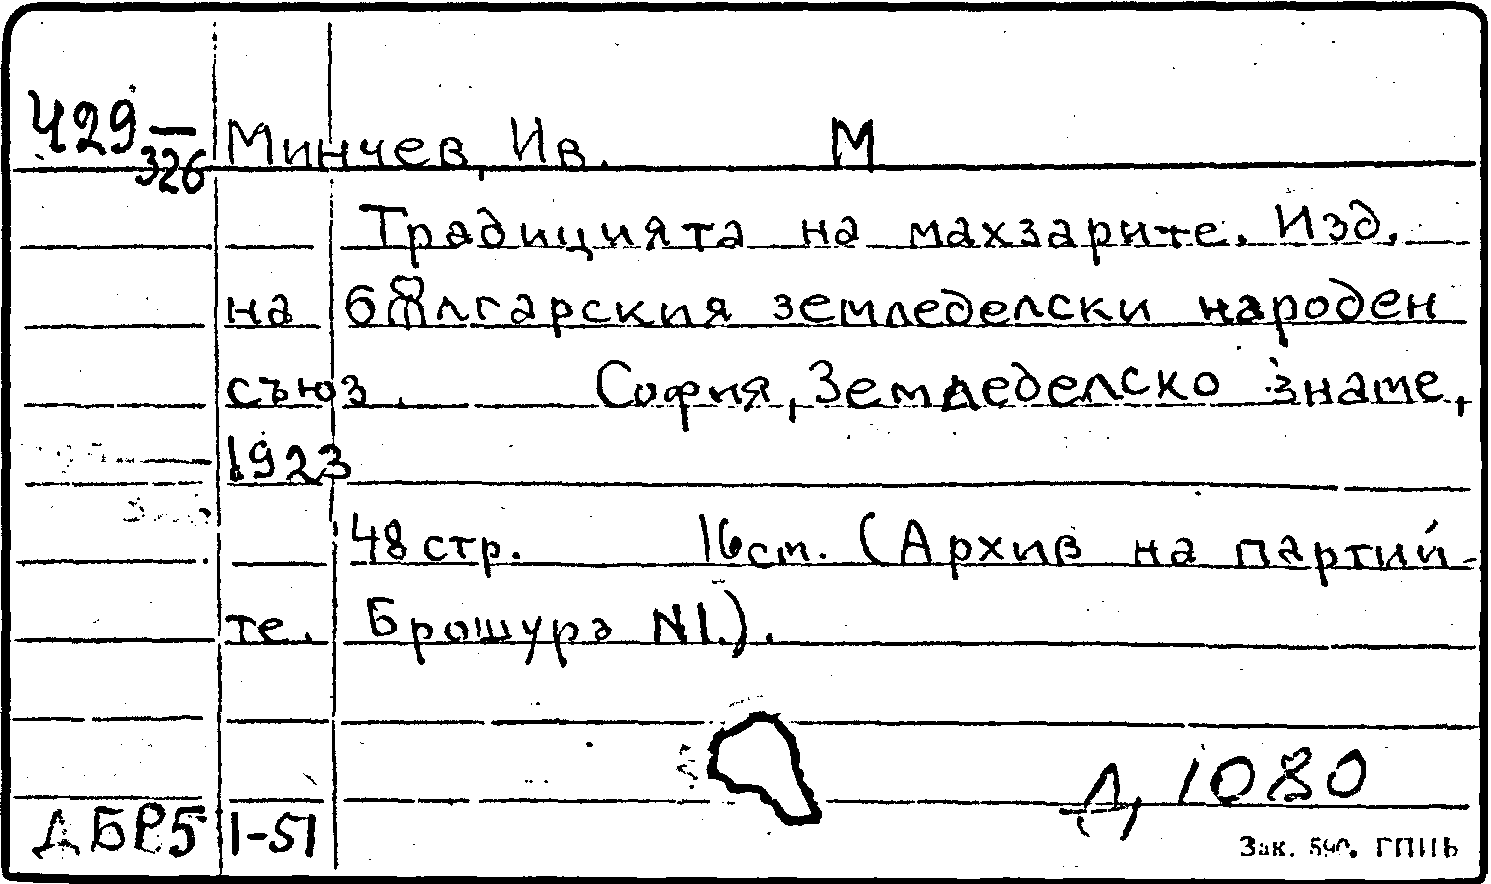 429-
326
Минчев, Ив. М
Традицията на махзарите. Изд.
на българския земледелски народен
съюз. София, Земледелско знаме,
1923
48 стр. 16 см. (Архив на партий-
те. Брошура N1.).
Д 1080
ДБР5 1-51
Зак. 590. ГПНБ